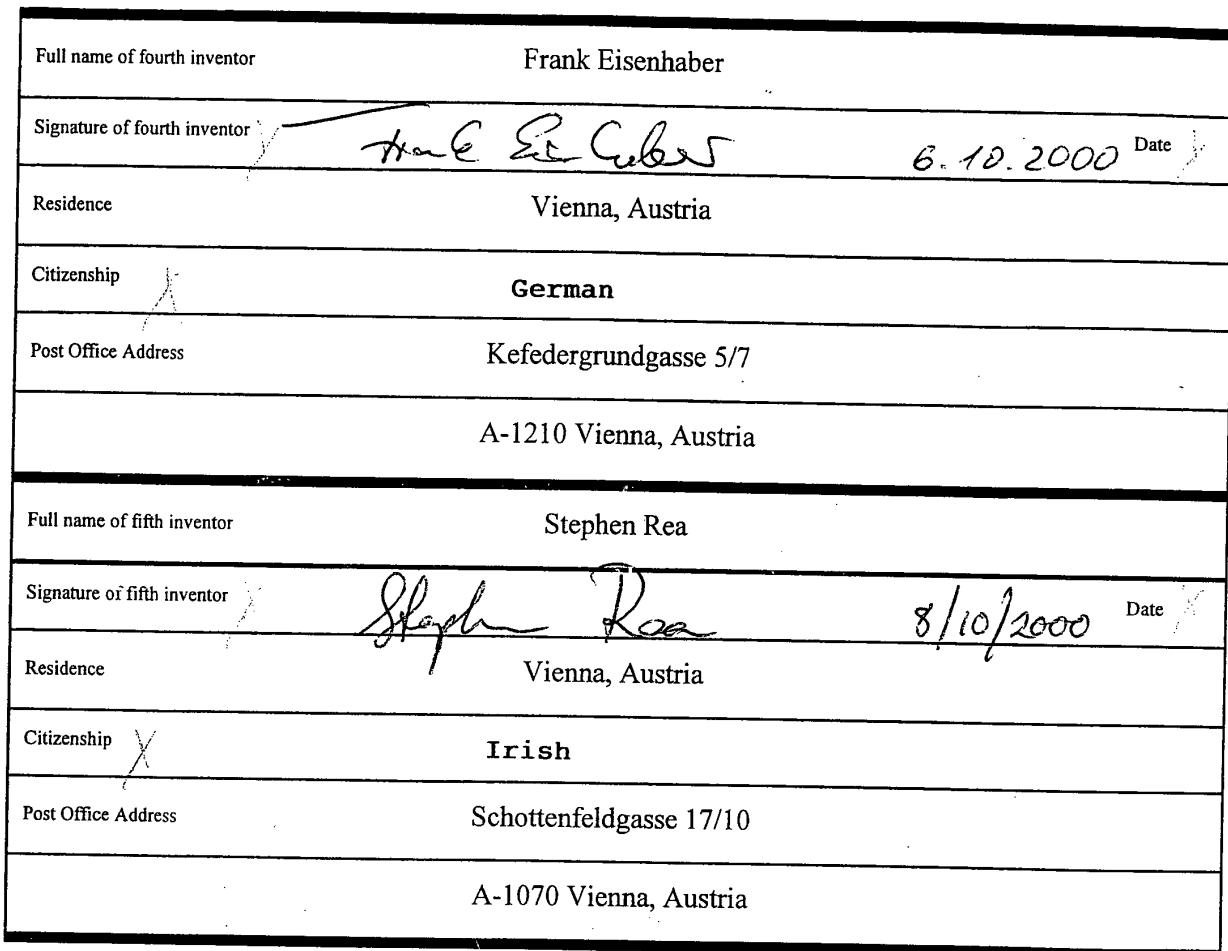 Full name of fourth inventor Frank Eisenhaber
Signature of fourth inventor Frank Eisenhaber 6.10.2000 Date
Residence Vienna, Austria
Citizenship German
Post Office Address Kefedergrundgasse 5/7
A-1210 Vienna, Austria
Full name of fifth inventor Stephen Rea
Signature of fifth inventor Stephen Rea 8/10/2000 Date
Residence Vienna, Austria
Citizenship Irish
Post Office Address Schottenfeldgasse 17/10
A-1070 Vienna, Austria